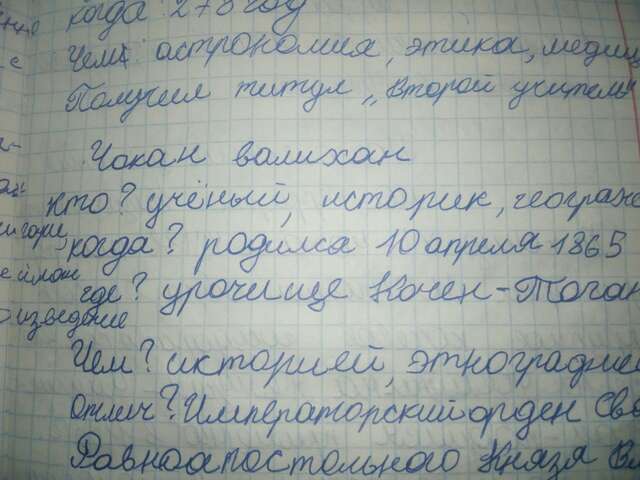 когда? 270 год
Чем? астрономия, этика, медиц
Получил титул „Второй учитель"
Чокан валихан
кто? учёный, историк, географ
когда? родился 10 апреля 1865
где? урочище Кочен-Тоган
изведение
Чем? икторией, этнографией
отлич? Императорский орден Свя
Равноапостольного Князя Вл